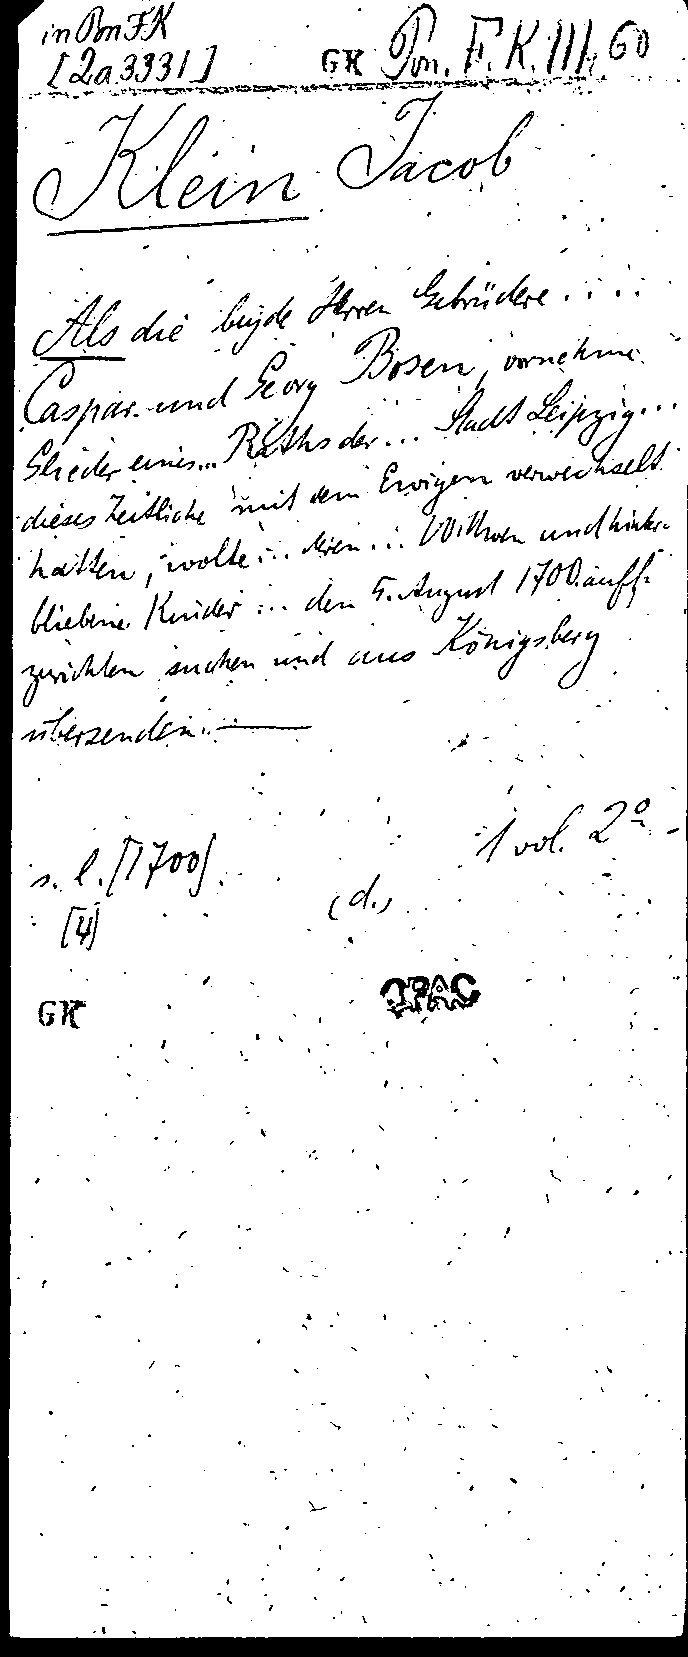 in Pon F.K
[2a 3331]
GK Pon. F. K. III, 60
Klein Jacob
Als die beyde Herren Gebrüdere....
Caspar und Georg Bosen, vornehme
Glieder eines... Raths der... Stadt Leipzig...
dieses Zeitliche mit dem Ewigen verwechselt
hatten, wolte... deren... Wittwen und hinter-
bliebene Kinder... den 5. August 1700. auff-
zurichten suchen und aus Königsberg
übersenden.
s. l. [1700].
1 vol. 2º
[4]
(d.)
GK
OPAC